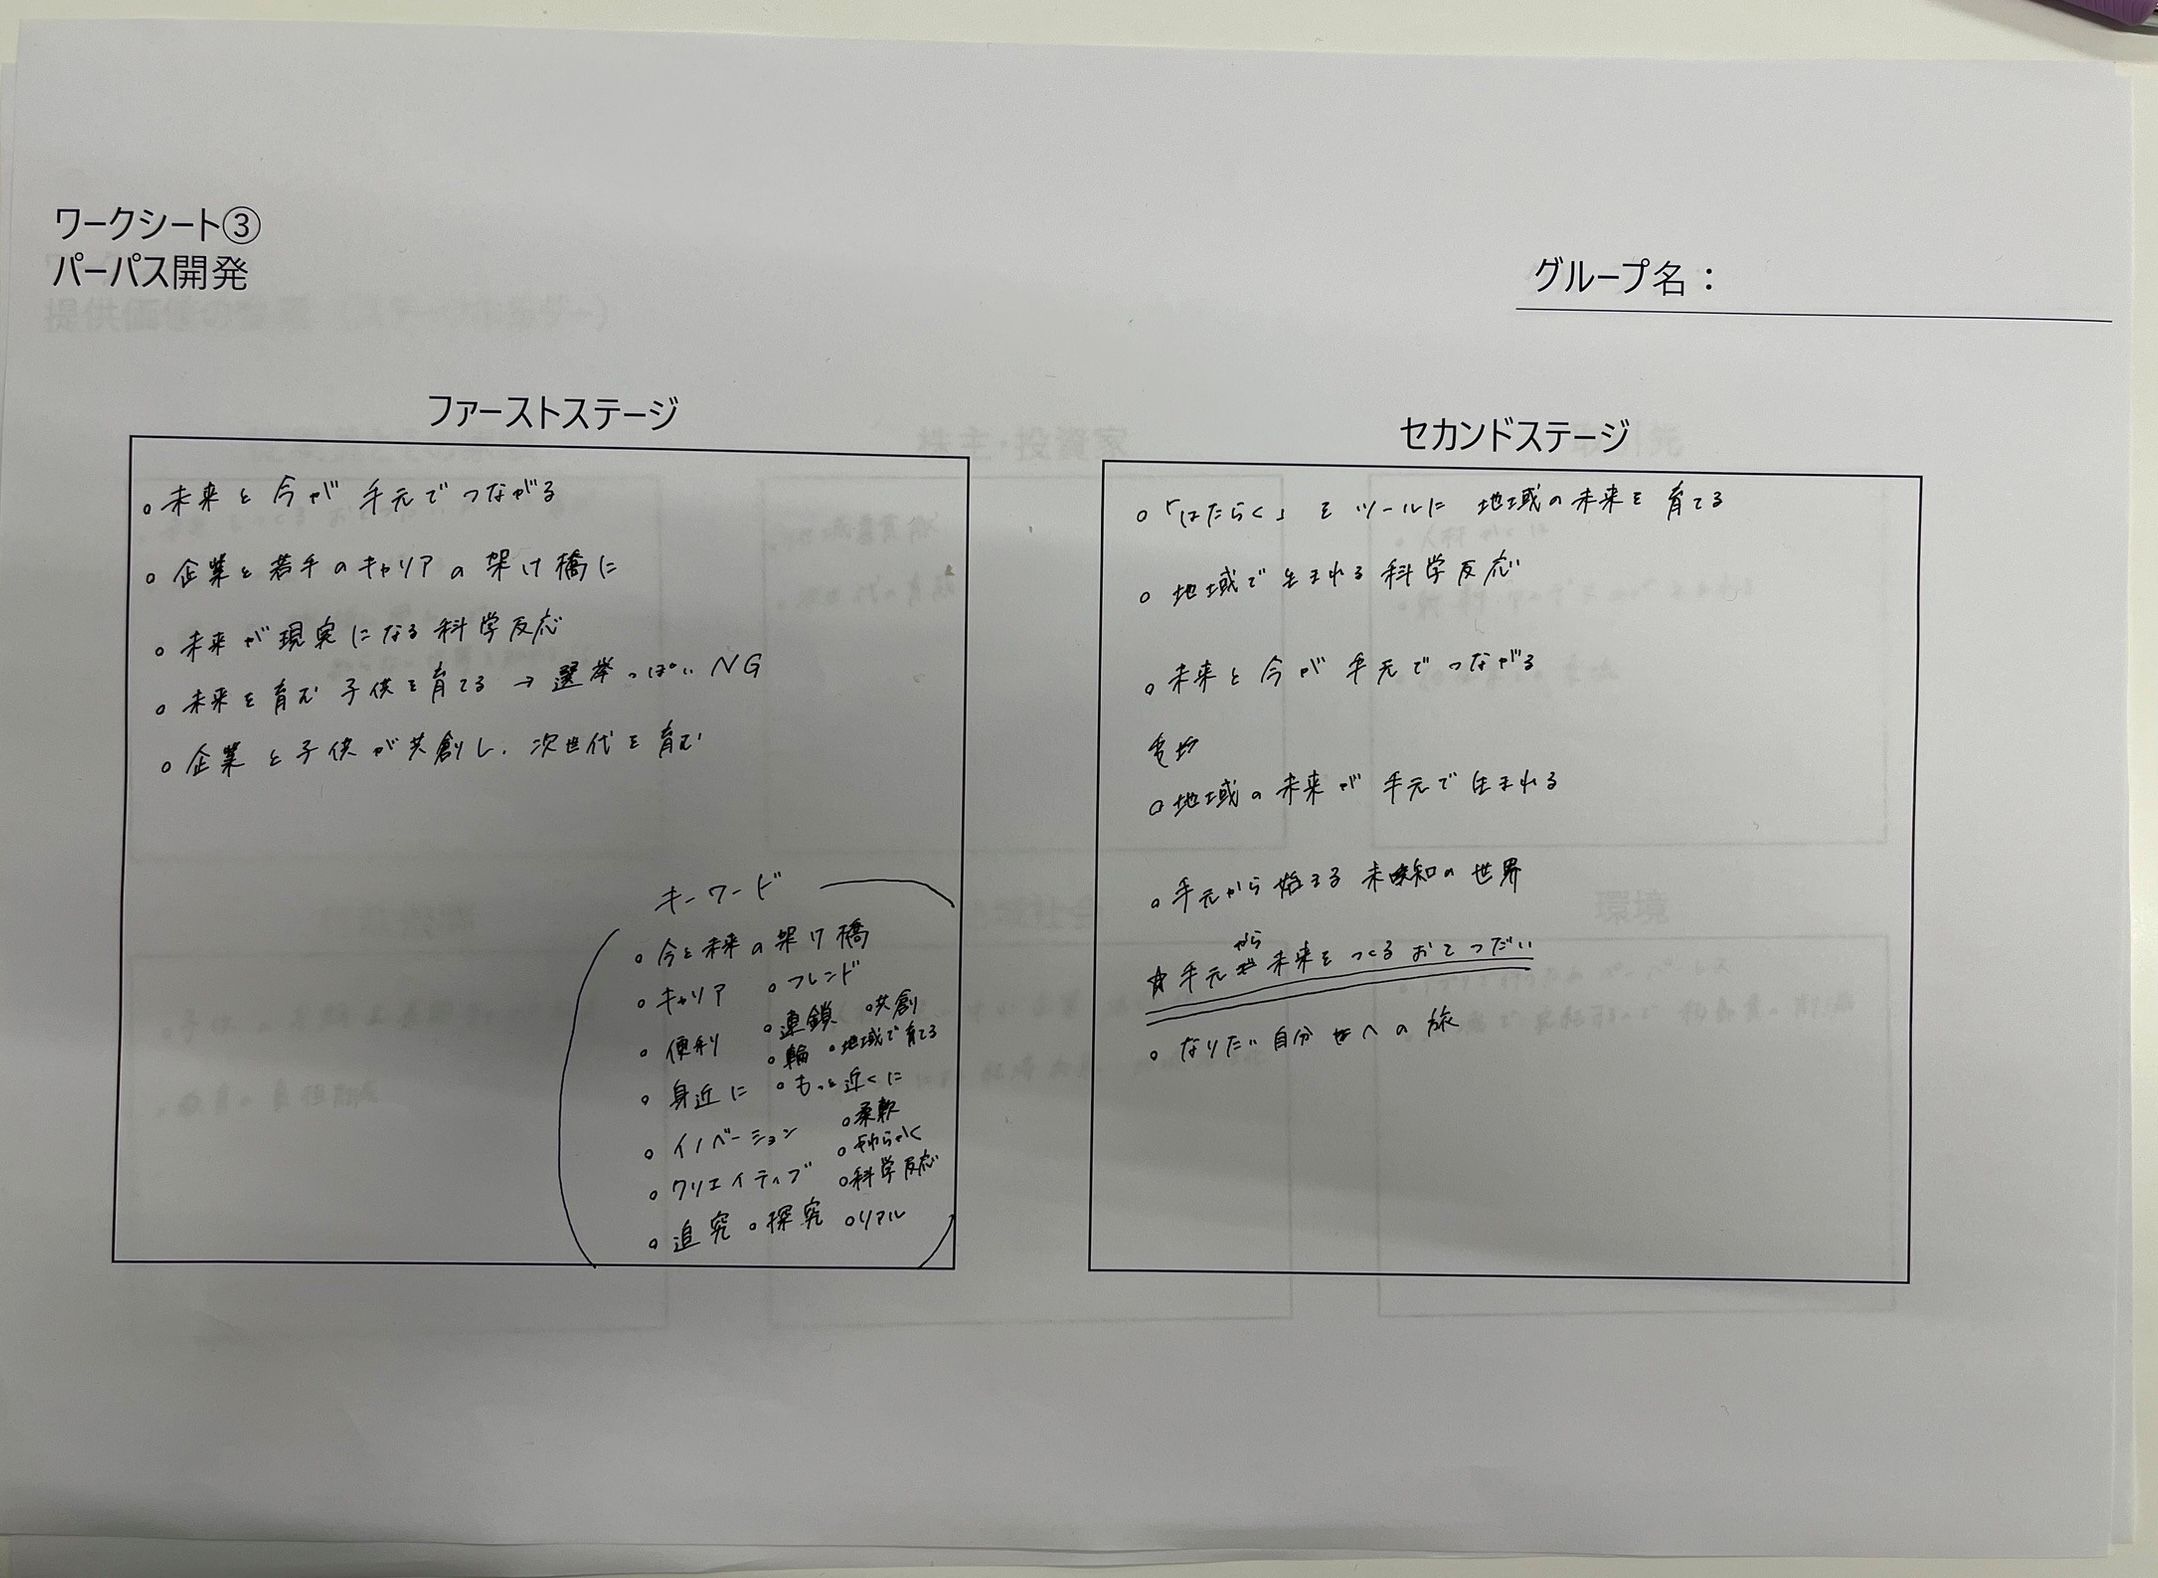 ワークシート③
パーパス開発
グループ名：
ファーストステージ
○未来と今が手元でつながる
○企業と若手のキャリアの架け橋に
○未来が現実になる科学反応
○未来を育む子供を育てる→選挙っぽいNG
○企業と子供が共創し、次世代を育む
キーワード
○今と未来の架け橋
○キャリア ○フレンド
○連鎖 ○共創
○便利 ○輪 ○地域で育てる
○身近に ○もっと近くに
○柔軟
○イノベーション ○やわらかく
○クリエイティブ ○科学反応
○追究 ○探究 ○リアル
セカンドステージ
○「はたらく」をツールに地域の未来を育てる
○地域で生まれる科学反応
○未来と今が手元でつながる
○地域の未来が手元で生まれる
○手元から始まる未知の世界
☆手元から未来をつくるおてつだい
○なりたい自分への旅